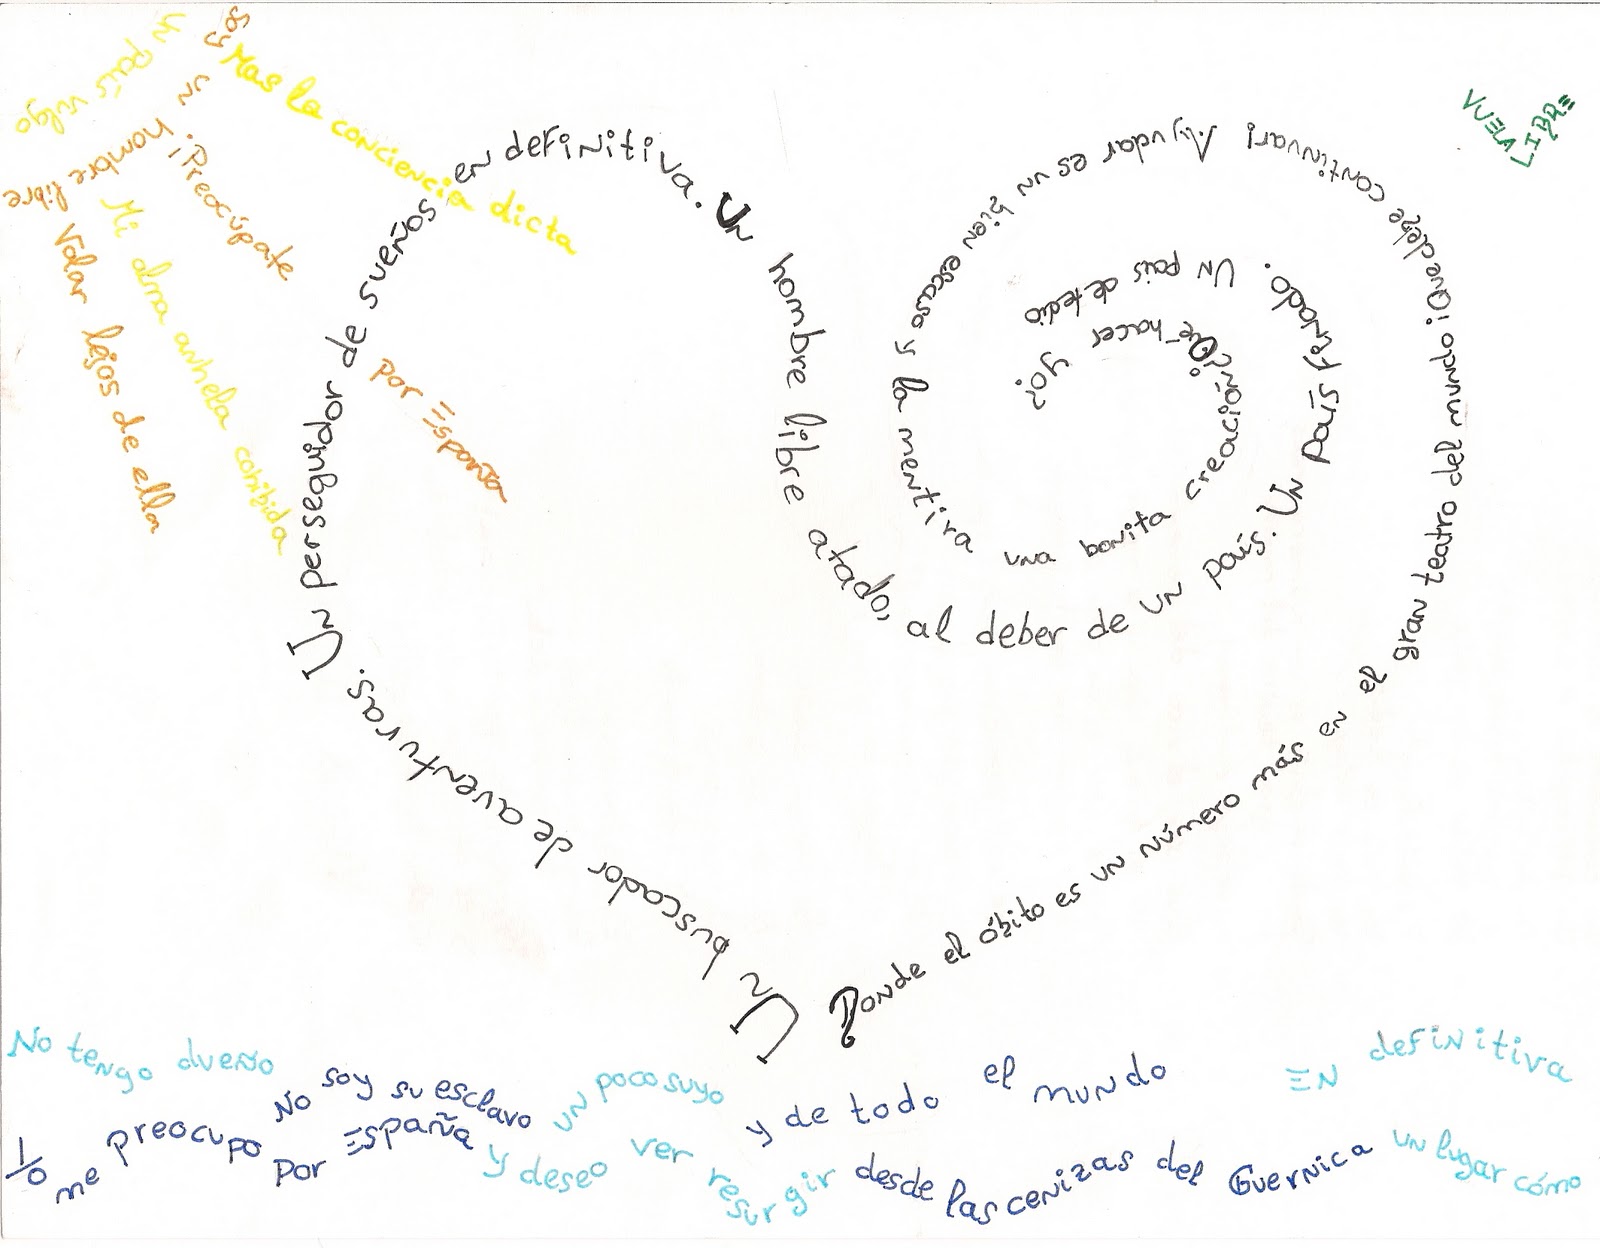 Soy
un
hombre libre
Un país vulgo
Mas la conciencia dicta
¡Preocúpate
por España
Mi alma anhela cohibida
Volar lejos de ella
VUELA
LIBRE
Un buscador de aventuras.
Un perseguidor de sueños
en definitiva.
Un hombre libre atado,
al deber de un país.
Un país fundado.
Un país de tedio
¿Qué hacer
yo?
Donde el óbito es un número más en el gran teatro del mundo
¡Que debze continuvar!
Ayudar es un bien escaso y la mentira una bonita creación
No tengo dueño
No soy su esclavo
un poco suyo
y de todo el mundo
En definitiva
Yo me preocupo por España
y deseo ver resurgir
desde las cenizas del Guernica
un lugar cómo